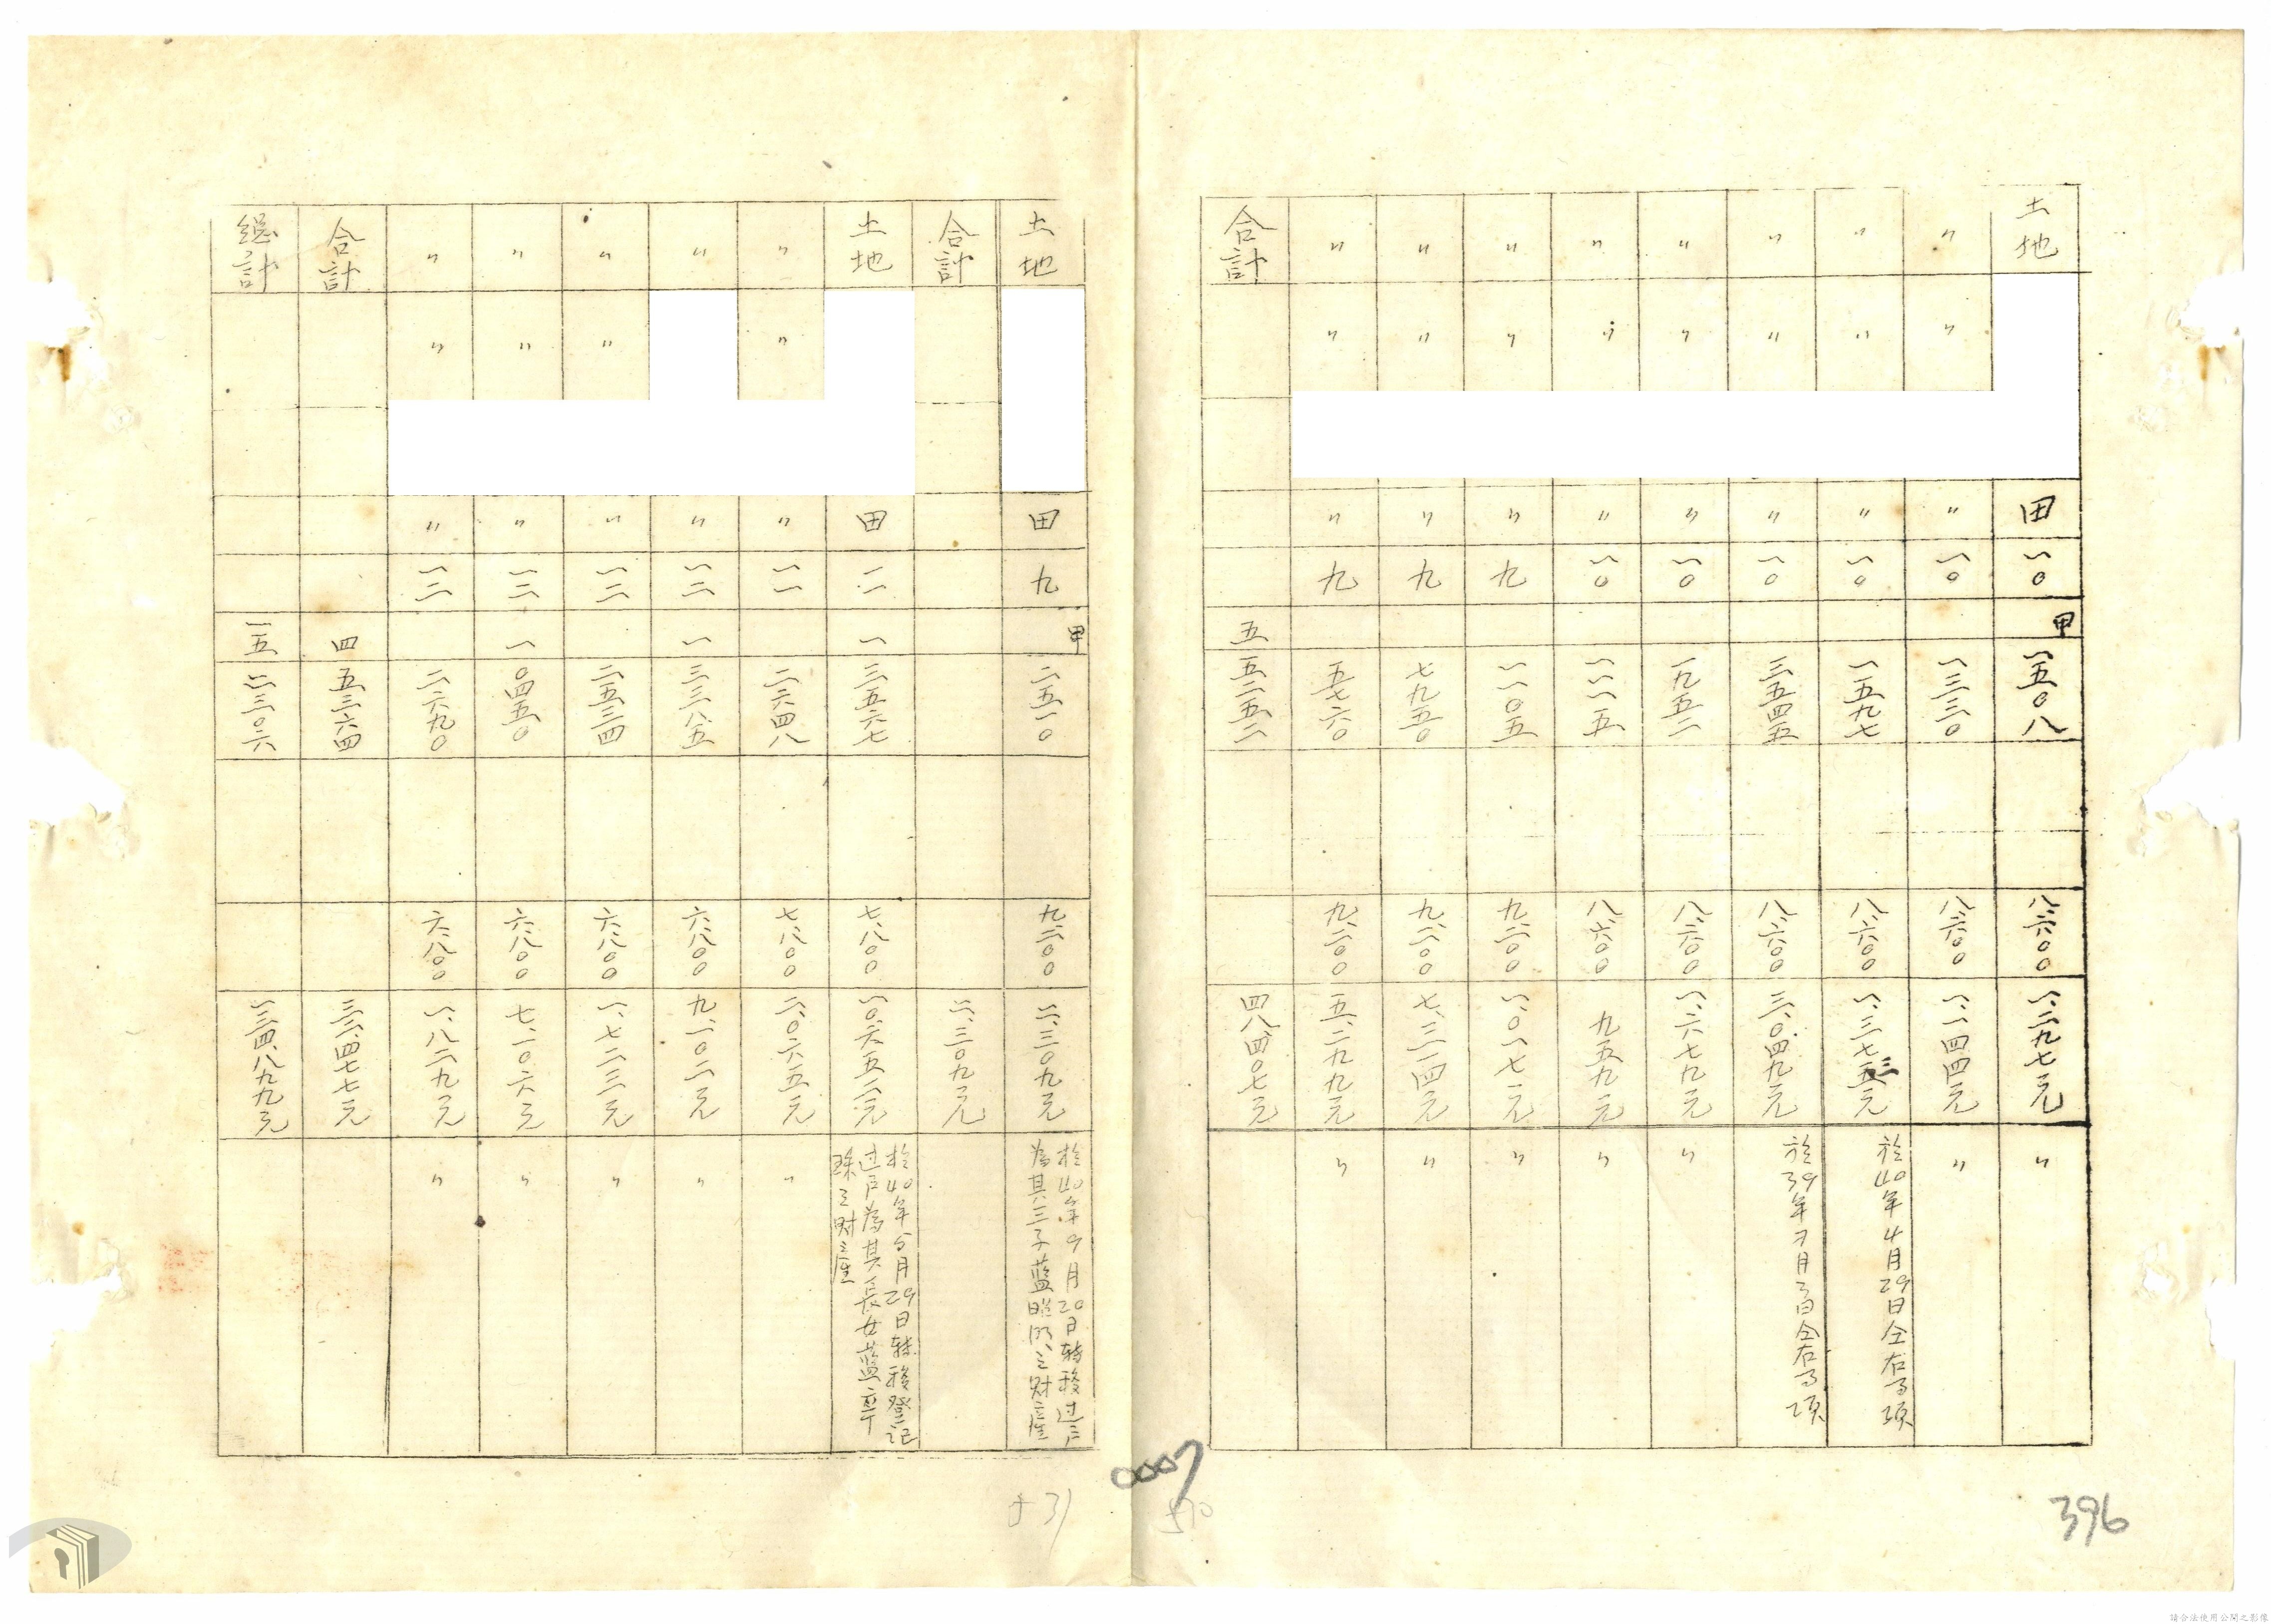 土地 田 一〇 甲 一五〇八 八、六〇〇 一、二九七元 〃
〃 〃 〃 一〇 一三三〇 八、六〇〇 一、一四四元 〃
〃 〃 〃 一〇 一五九七 八、六〇〇 一、三七三元 於40年4月29日仝右事項
〃 〃 〃 一〇 三五四五 八、六〇〇 三、〇四九元 於39年7月3日仝右事項
〃 〃 〃 一〇 一九五二 八、六〇〇 一、六七九元 〃
〃 〃 〃 一〇 一一一五 八、六〇〇 九五九元 〃
〃 〃 〃 九 一一〇五 九、二〇〇 一、〇一七元 〃
〃 〃 〃 九 七九五〇 九、二〇〇 七、三一四元 〃
〃 〃 〃 九 五七六〇 九、二〇〇 五、二九九元 〃
合計 五 五二五一 四八、四〇七元
土地 田 九 甲 二五一〇 九、二〇〇 二、三〇九元 於40年9月20日转移过户
為其三子蓝昭明之财產
合計 二、三〇九元
土地 田 一一 一 三六五七 七、八〇〇 一〇、六五二元 於40年 月29日转移登记
过户為其長女蓝
珠之财產
〃 〃 〃 一一 二六四八 七、八〇〇 二、〇六五元 〃
〃 〃 一二 一 三三八五 六、八〇〇 九、一〇二元 〃
〃 〃 〃 一二 二五三四 六、八〇〇 一、七二三元 〃
〃 〃 〃 一二 一 〇四五〇 六、八〇〇 七、一〇六元 〃
〃 〃 〃 一二 二六九〇 六、八〇〇 一、八二九元 〃
合計 四 五三六四 三二、四七七元
總計 一五 二三〇六 一三四、八九九元
0007
396
531
570
請合法使用公開之影像